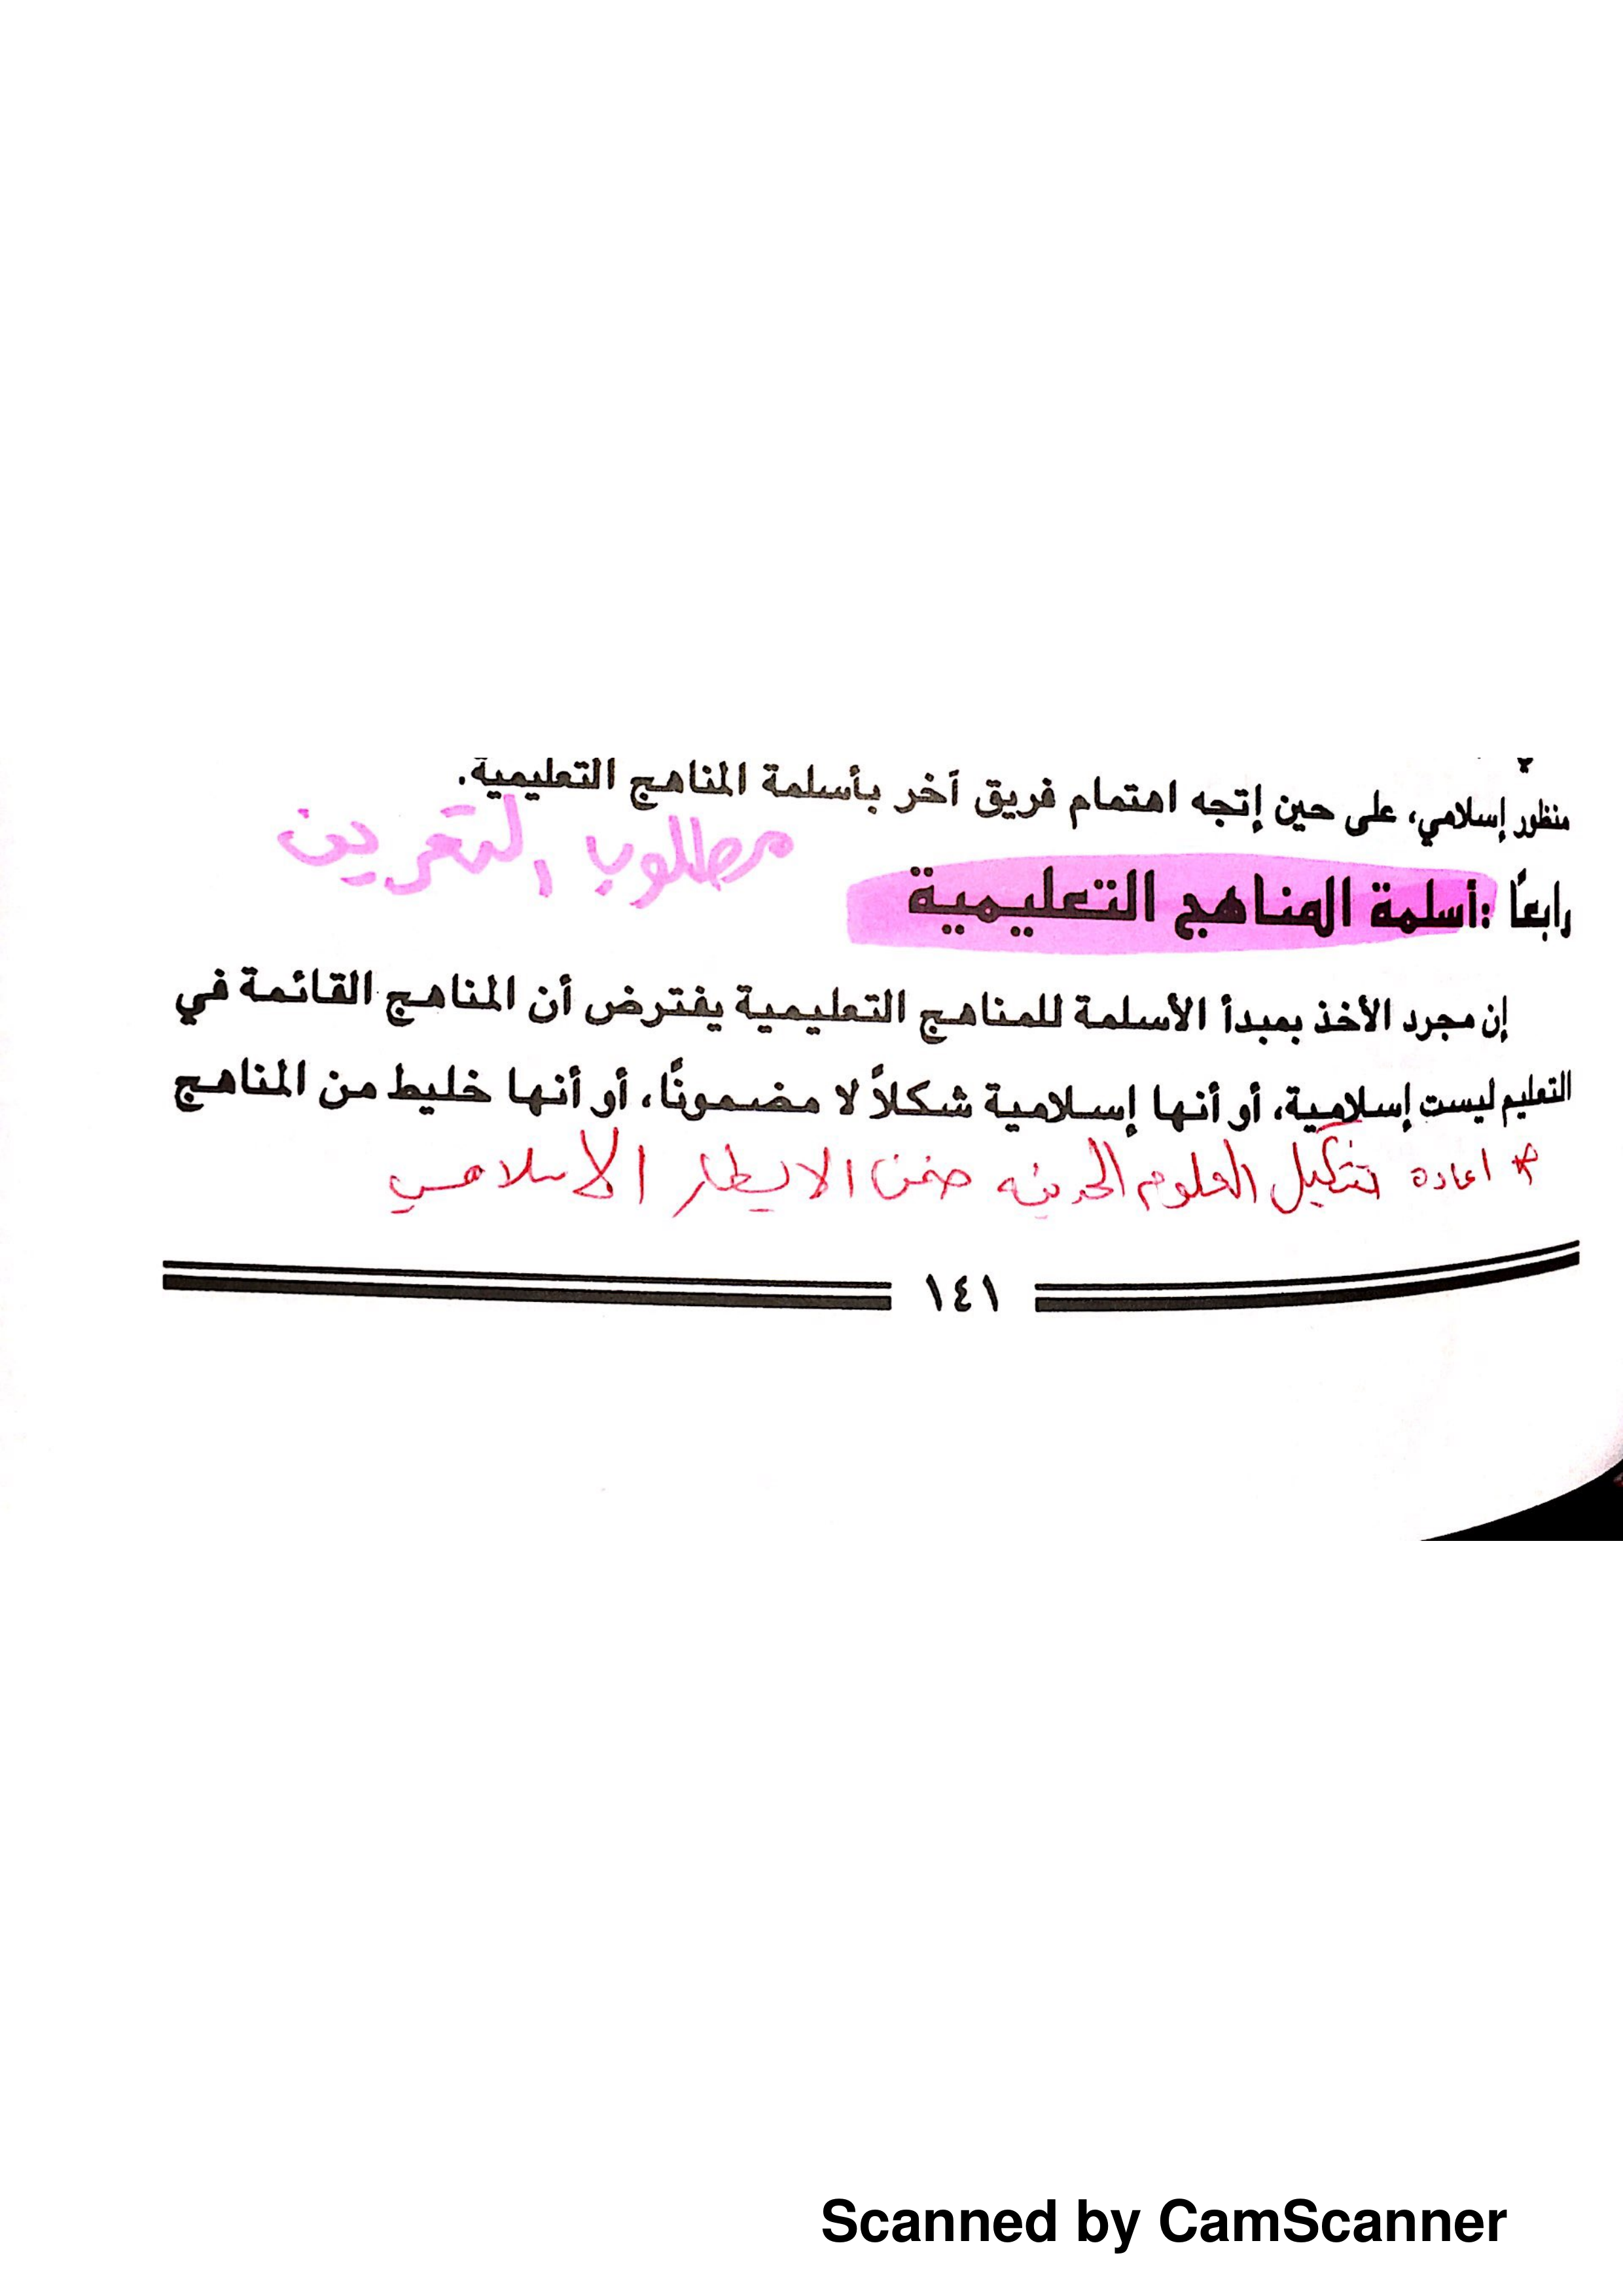 منظور إسلامي، على حين إتجه اهتمام فريق آخر بأسلمة المناهج التعليمية.
مطلوب التعريف
رابعًا : أسلمة المناهج التعليمية
إن مجرد الأخذ بمبدأ الأسلمة للمناهج التعليمية يفترض أن المناهج القائمة في
التعليم ليست إسلامية، أو أنها إسلامية شكلاً لا مضمونًا، أو أنها خليط من المناهج
* اعادة تشكيل العلوم الحديثه ضمن الايطار الاسلامي
١٤١
Scanned by CamScanner